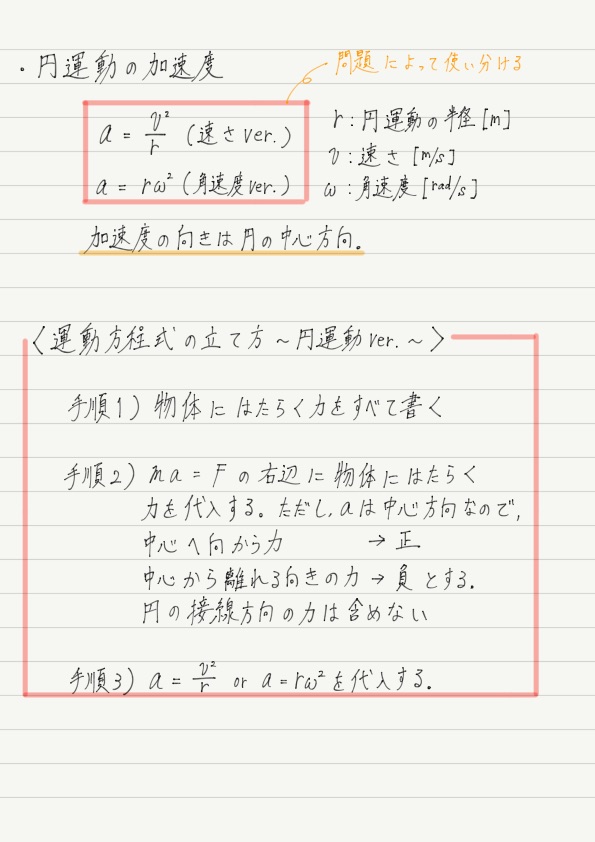 ・円運動の加速度
問題によって使い分ける
a = v²/r (速さver.)
a = rω² (角速度ver.)
r : 円運動の半径 [m]
v : 速さ [m/s]
ω : 角速度 [rad/s]
加速度の向きは円の中心方向。
〈運動方程式の立て方 ~円運動ver.~〉
手順1) 物体にはたらく力をすべて書く
手順2) ma = F の右辺に物体にはたらく
力を代入する。ただし、aは中心方向なので、
中心へ向から力 → 正
中心から離れる向きの力 → 負 とする。
円の接線方向の力は含めない
手順3) a = v²/r or a = rω² を代入する。